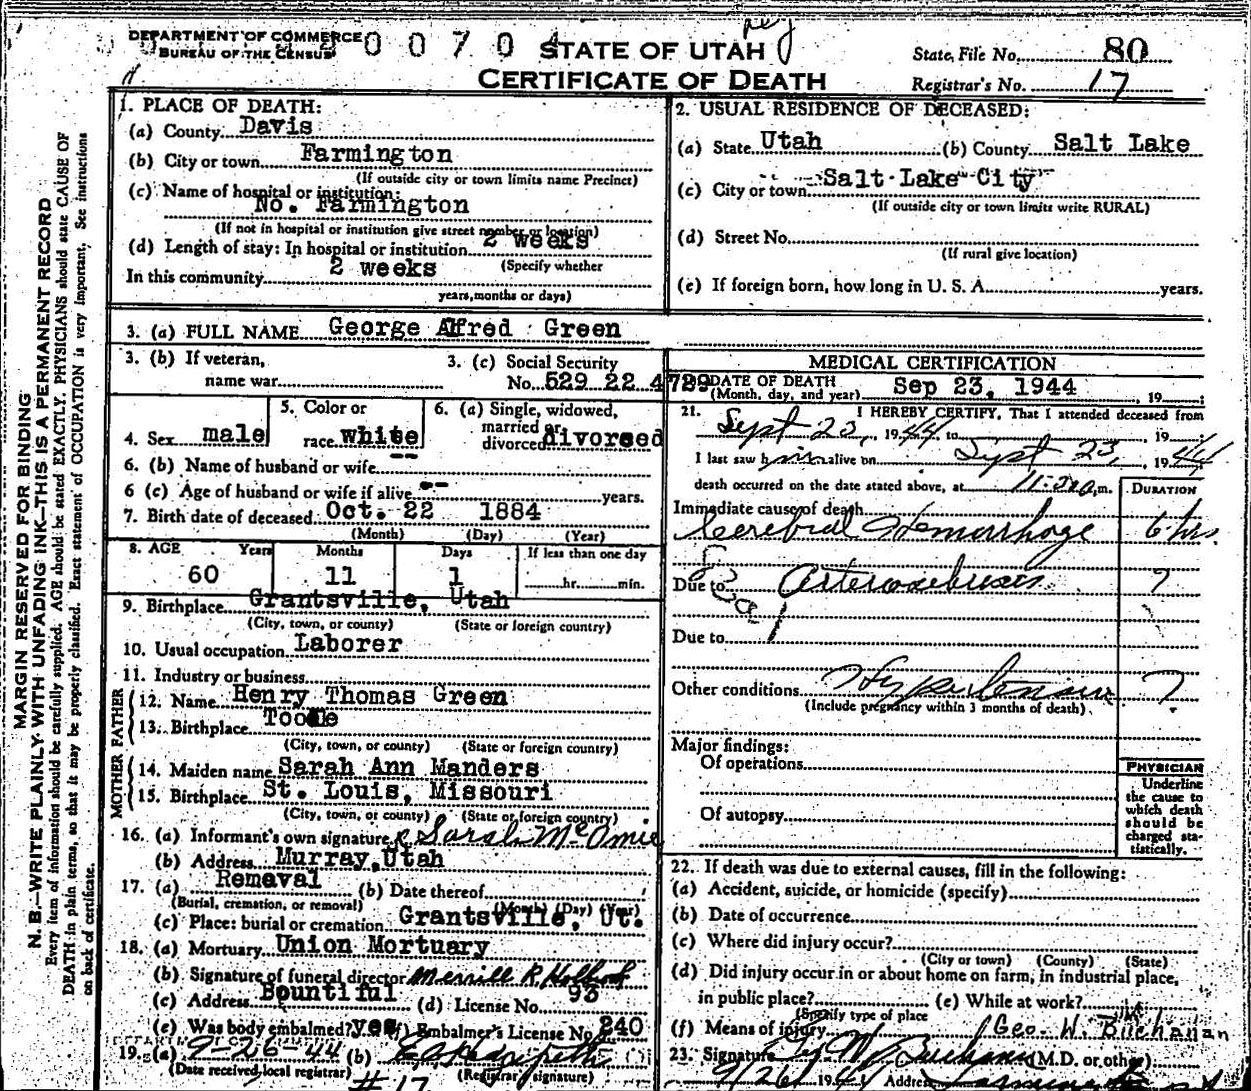 DEPARTMENT OF COMMERCE
BUREAU OF THE CENSUS
STATE OF UTAH
CERTIFICATE OF DEATH
State File No. 80
Registrar's No. 17
MARGIN RESERVED FOR BINDING
N. B.—WRITE PLAINLY WITH UNFADING INK—THIS IS A PERMANENT RECORD
Every item of information should be carefully supplied. AGE should be stated EXACTLY. PHYSICIANS should state CAUSE OF
DEATH in plain terms, so that it may be properly classified. Exact statement of OCCUPATION is very important. See instructions
on back of certificate.
1. PLACE OF DEATH:
(a) County Davis
(b) City or town Farmington
(If outside city or town limits name Precinct)
(c) Name of hospital or institution:
No. Farmington
(If not in hospital or institution give street number or location)
(d) Length of stay: In hospital or institution 2 weeks
(Specify whether
In this community 2 weeks
years, months or days)
2. USUAL RESIDENCE OF DECEASED:
(a) State Utah (b) County Salt Lake
(c) City or town Salt Lake City
(If outside city or town limits write RURAL)
(d) Street No.
(If rural give location)
(e) If foreign born, how long in U. S. A. years.
3. (a) FULL NAME George Alfred Green
3. (b) If veteran,
name war
3. (c) Social Security
No. 529 22 4729
4. Sex male
5. Color or
race white
6. (a) Single, widowed,
married or
divorced divorsed
6. (b) Name of husband or wife --
6 (c) Age of husband or wife if alive -- years.
7. Birth date of deceased Oct. 22 1884
(Month) (Day) (Year)
8. AGE Years Months Days If less than one day
60 11 1 hr. min.
9. Birthplace Grantsville, Utah
(City, town, or county) (State or foreign country)
10. Usual occupation Laborer
11. Industry or business
FATHER
12. Name Henry Thomas Green
13. Birthplace
(City, town, or county) (State or foreign country)
MOTHER
14. Maiden name Sarah Ann Manders
15. Birthplace St. Louis, Missouri
(City, town, or county) (State or foreign country)
16. (a) Informant's own signature Sarah McAmie
(b) Address Murray, Utah
17. (a) Removal (b) Date thereof
(Burial, cremation, or removal) (Month) (Day) (Year)
(c) Place: burial or cremation Grantsville, Ut.
18. (a) Mortuary Union Mortuary
(b) Signature of funeral director Merrill R. Holbrook
(c) Address Bountiful (d) License No. 93
(e) Was body embalmed? yes (f) Embalmer's License No. 240
19. (a) 9-26-44 (b)
(Date received local registrar) (Registrar's signature)
#17
MEDICAL CERTIFICATION
20. DATE OF DEATH Sep 23, 1944 , 19
(Month, day, and year)
21. I HEREBY CERTIFY, That I attended deceased from
Sept 23, 1944 to , 19
I last saw him alive on Sept 23, 1944
death occurred on the date stated above, at m.
DURATION
Immediate cause of death
Cerebral Hemorrhage 6 hrs.
Due to ?
Due to
Other conditions Hypertension ?
(Include pregnancy within 3 months of death)
Major findings:
Of operations
Of autopsy
PHYSICIAN
Underline
the cause to
which death
should be
charged sta-
tistically.
22. If death was due to external causes, fill in the following:
(a) Accident, suicide, or homicide (specify)
(b) Date of occurrence
(c) Where did injury occur?
(City or town) (County) (State)
(d) Did injury occur in or about home on farm, in industrial place,
in public place? (e) While at work?
(Specify type of place
(f) Means of injury Geo. W. Buchanan
23. Signature Buchanan (M.D. or other)
9/26 1944 Address